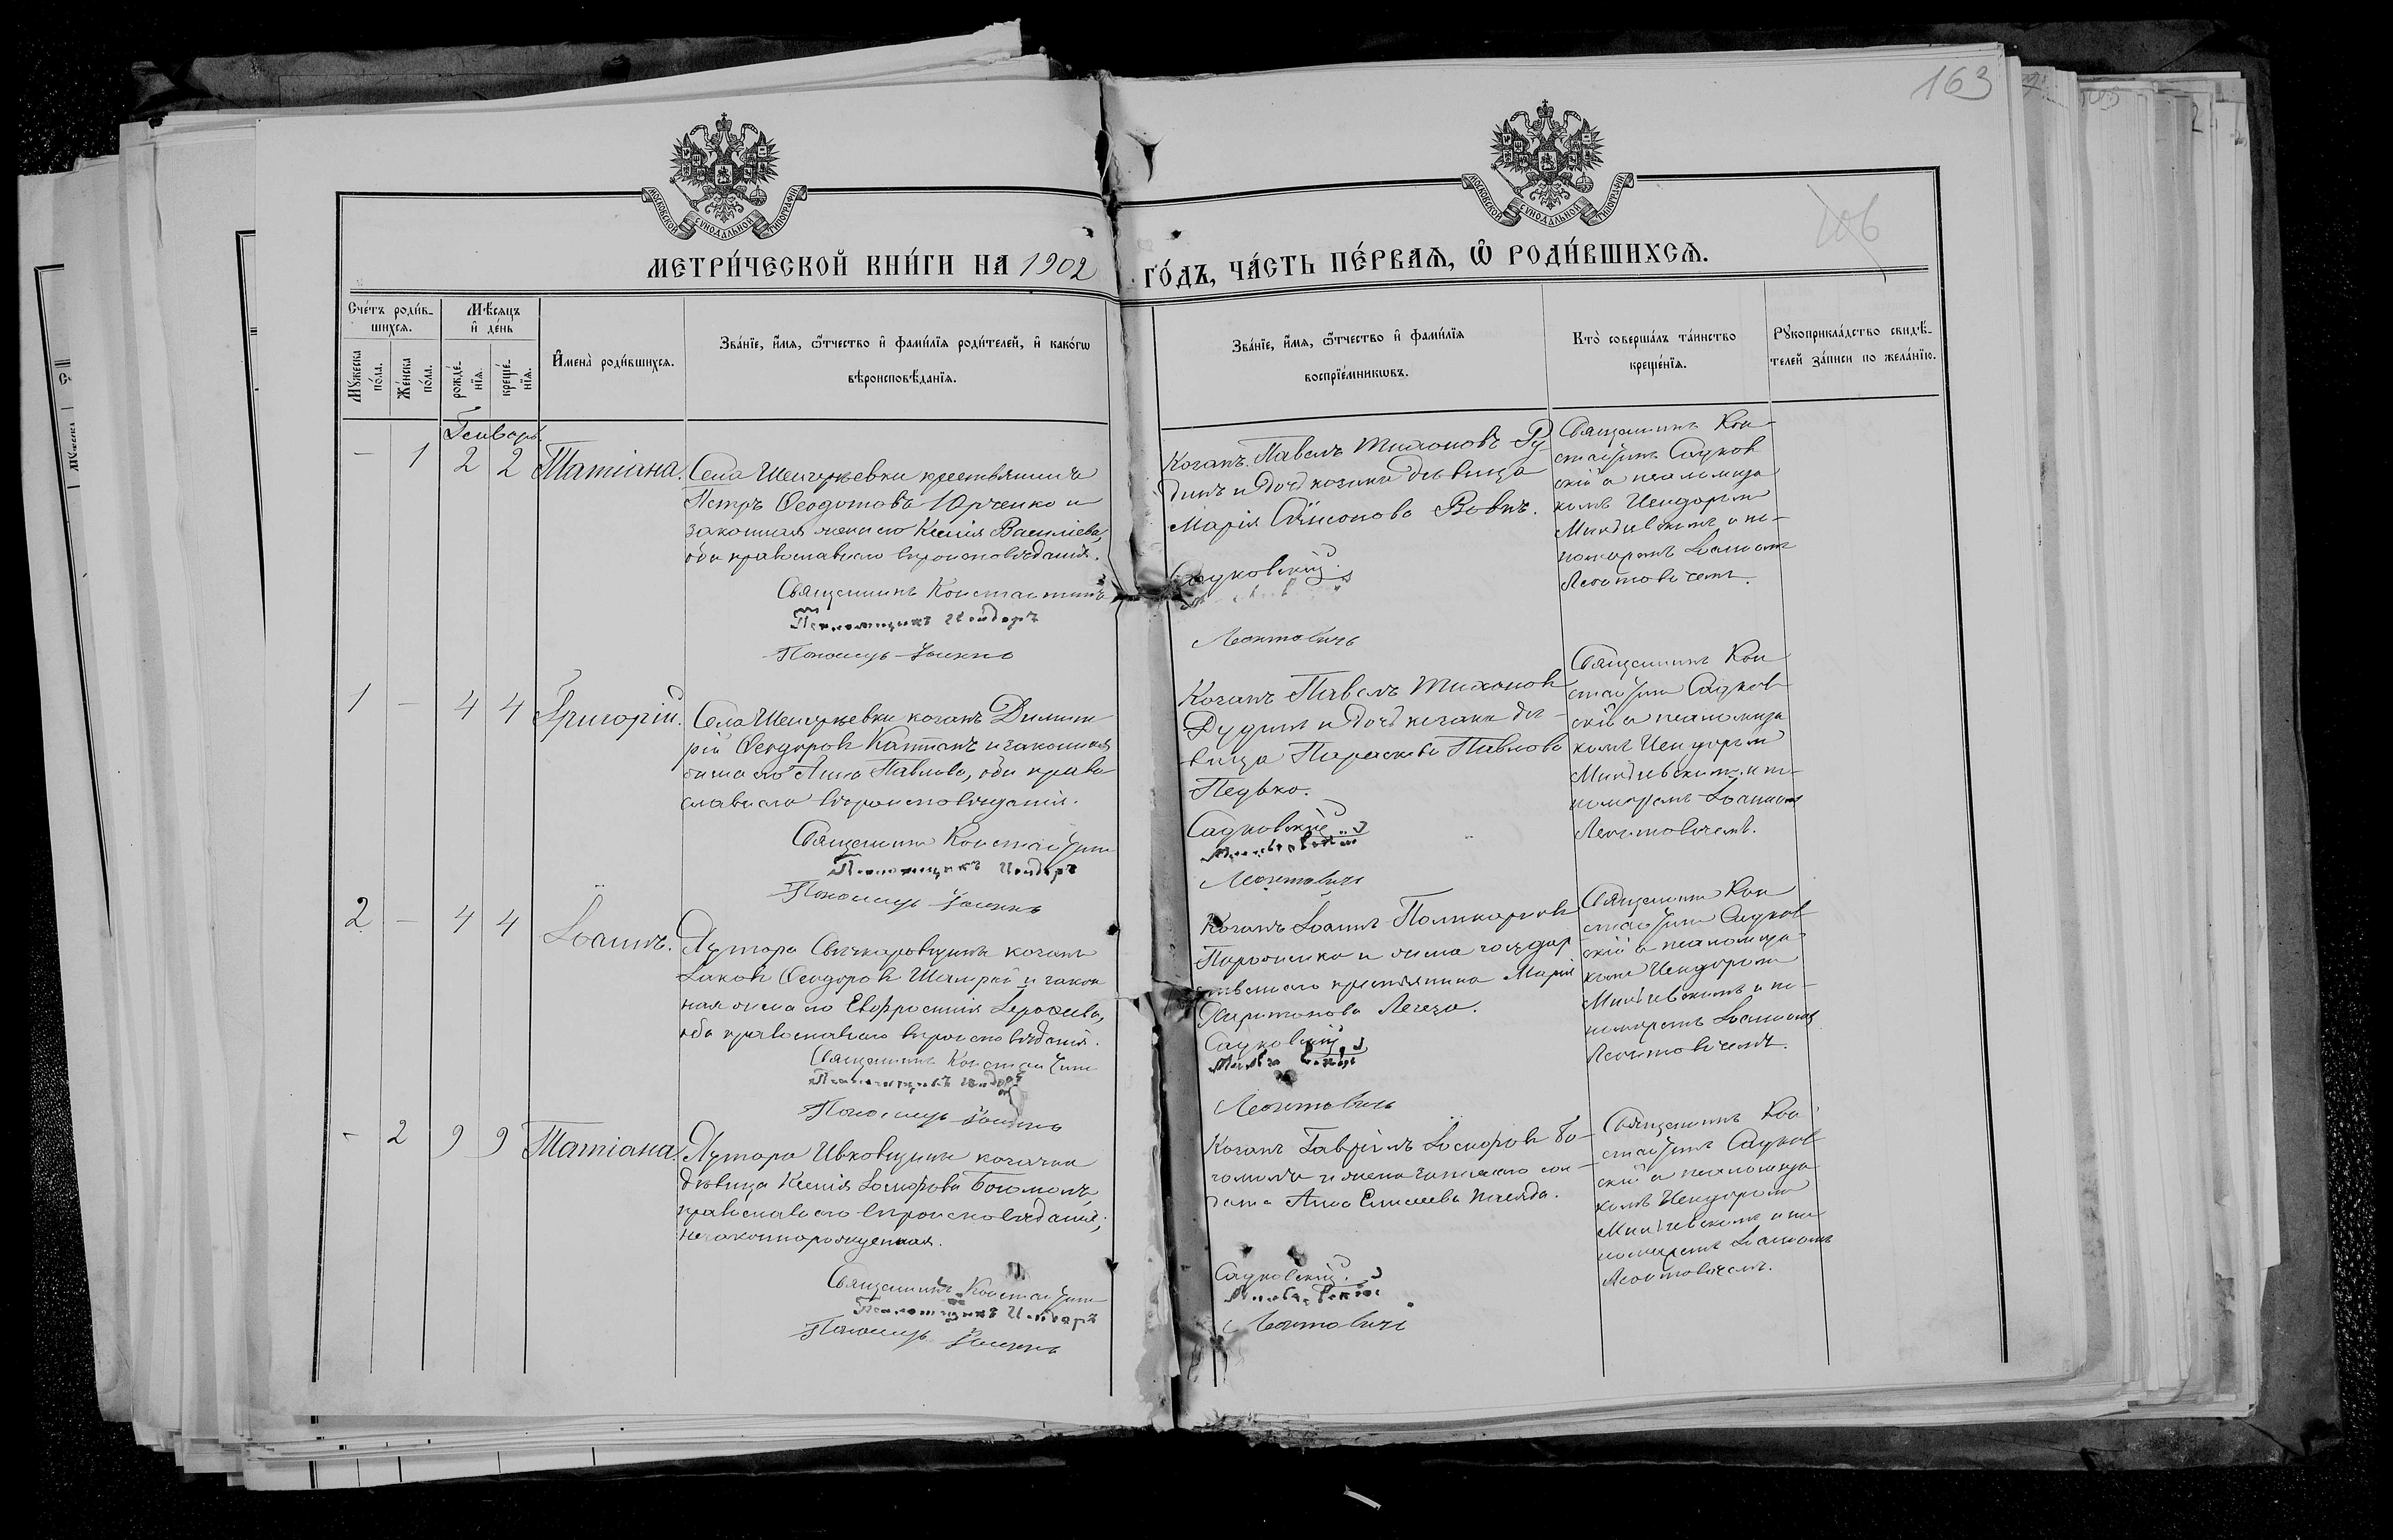 163
106
МОСКОВСКОЙ СѴНОДАЛЬНОЙ ТИПОГРАФІИ
МОСКОВСКОЙ СѴНОДАЛЬНОЙ ТИПОГРАФІИ
МЕТРИ́ЧЕСКОЙ КНИ́ГИ НА 1902 ГО́ДЪ, ЧА́СТЬ ПЕ́РВАѦ, Ѡ҆ РОДИ́ВШИХСѦ.
Сче́тъ роди́в-
шихсѧ.
Мꙋжеска по́ла.
Же́нска по́ла.
Мѣ́сѧцъ
и҆ де́нь
рожде́-
нїѧ.
креще́-
нїѧ.
И҆мена̀ роди́вшихсѧ.
Зва́нїе, и҆́мѧ, ѻ҆́тчество и҆ фами́лїѧ роди́телей, и҆ како́гѡ
вѣроисповѣ́данїѧ.
Зва́нїе, и҆́мѧ, ѻ҆́тчество и҆ фами́лїѧ
воспрїе́мникѡвъ.
Кто̀ соверша́лъ та́инство
креще́нїѧ.
Рꙋкоприкла́дство свидѣ́-
телей за́писи по жела́нїю.
Генварь
- 1 2 2 Татіана.
Села крестьянинъ
Петръ Ѳеодотовъ Юрченко и
законная жена его Ксенія Василіева,
оба православнаго вѣроисповѣданія.
Священникъ Константинъ
Псаломщикъ Исидоръ
Пономарь Іоаннъ
Козакъ Павелъ Тихоновъ Ру
динъ и дочь козака дѣвица
Марія
Садковскій
Леонтовичъ
Священникъ Кон-
стантинъ Садков
скій съ псаломщи
комъ Исидоромъ
и по-
номаремъ Іоанномъ
Леонтовичемъ.
1 - 4 4 Григорій.
Села козакъ Димит
рій Ѳеодоровъ и законная
жена его Анна Павлова, оба право
славнаго вѣроисповѣданія.
Священникъ Константинъ
Псаломщикъ Исидоръ
Пономарь Іоаннъ
Козакъ Павелъ Тихоновъ
и дочь козака дѣ-
вица Параскева Павлова
Педько.
Садковскій
Леонтовичъ
Священникъ Кон
стантинъ Садков
скій съ псаломщи
комъ Исидоромъ
и по-
номаремъ Іоанномъ
Леонтовичемъ.
2 - 4 4 Іоаннъ.
Хутора козакъ
Іаковъ Ѳеодоровъ и закон
ная жена его Евфросинія Іероѳеева,
оба православнаго вѣроисповѣданія.
Священникъ Константинъ
Псаломщикъ Исидоръ
Пономарь Іоаннъ
Козакъ Іоаннъ Поликарповъ
и жена государ
ственнаго крестьянина Марія
Харитонова Легеза.
Садковскій
Леонтовичъ
Священникъ Кон
стантинъ Садков
скій съ псаломщи
комъ Исидоромъ
и по-
номаремъ Іоанномъ
Леонтовичемъ.
- 2 9 9 Татіана.
Хутора Ивковщины козачка
дѣвица Ксенія Богомолъ,
православнаго вѣроисповѣданія;
незаконнорожденная.
Священникъ Константинъ
Псаломщикъ Исидоръ
Пономарь Іоаннъ
Козакъ Гавріилъ Бо-
гомолъ и жена запаснаго сол-
дата Анна Елисеева
Садковскій
Леонтовичъ
Священникъ Кон
стантинъ Садков
скій съ псаломщи
комъ Исидоромъ
и по-
номаремъ Іоанномъ
Леонтовичемъ.